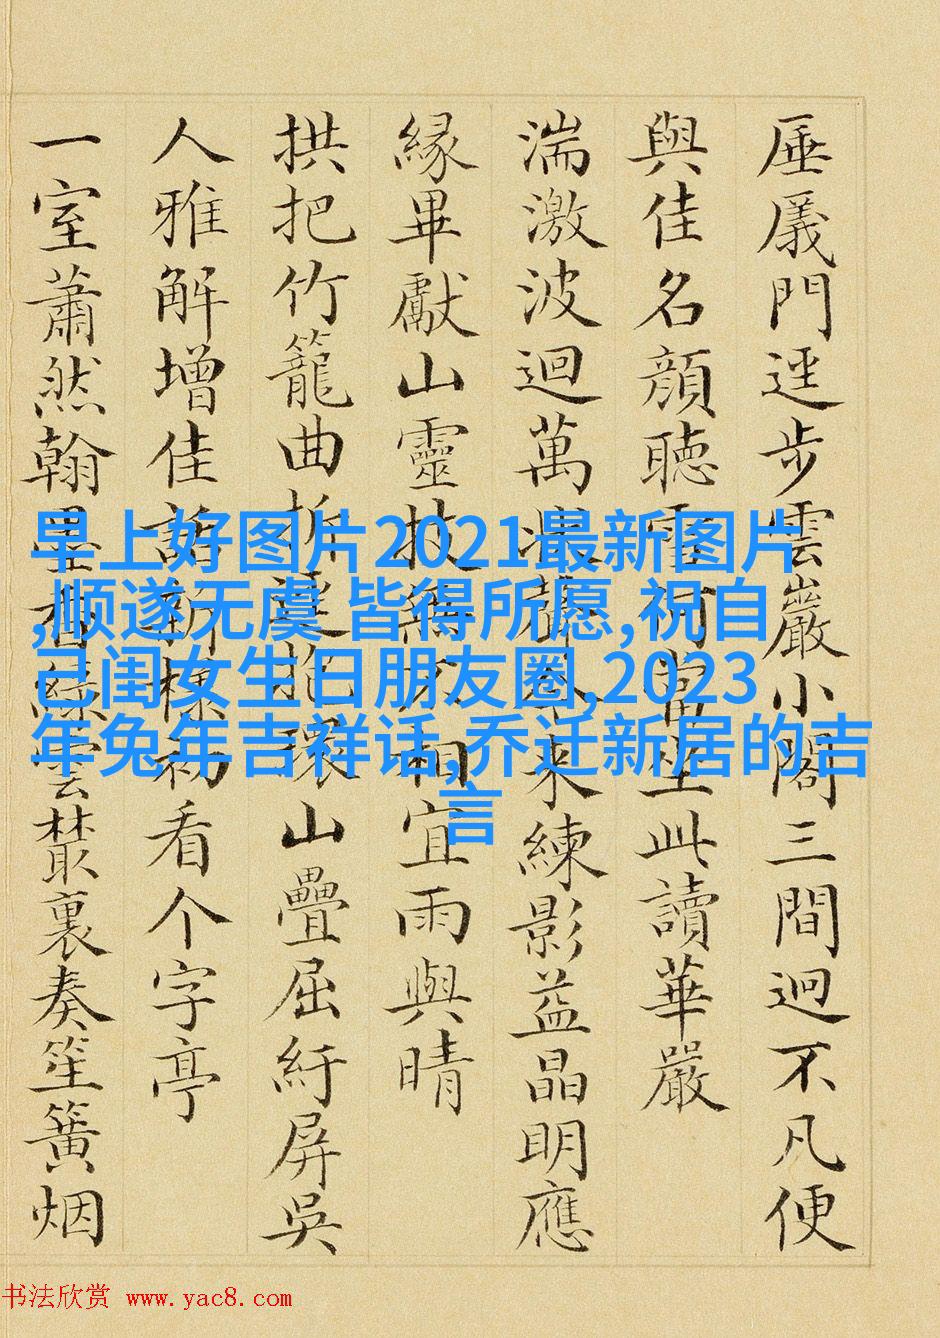 厜㕒門逕步雲巖小閣三間迥不凡便
與佳名顏聽雪何當坐此讀華嚴
湍激波迴萬來練影益晶明應
緣畢獻山靈技無不相宜雨與晴
拱把竹籠曲折環山疊屈紆屏吳
人雅解增佳話新樣初看个字亭
一室蕭然翰墨香綠雲叢裏奏笙簧烟
早上好图片2021最新图片
,顺遂无虞 皆得所愿,祝自
己闺女生日朋友圈,2023
年兔年吉祥话,乔迁新居的吉
言
书法欣赏 www.yac8.com